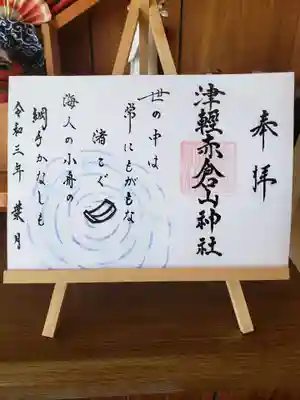 奉拝
津軽赤倉山神社
世の中は
常にもがもな
渚こぐ
海人の小舟の
綱手かなしも
令和三年 葉月